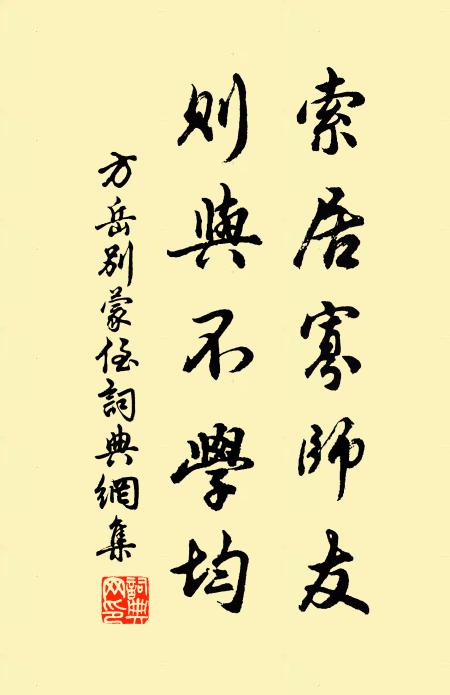 索居寡師友
則與不學均
方岳別蒙侄詞典網集
詞典网印